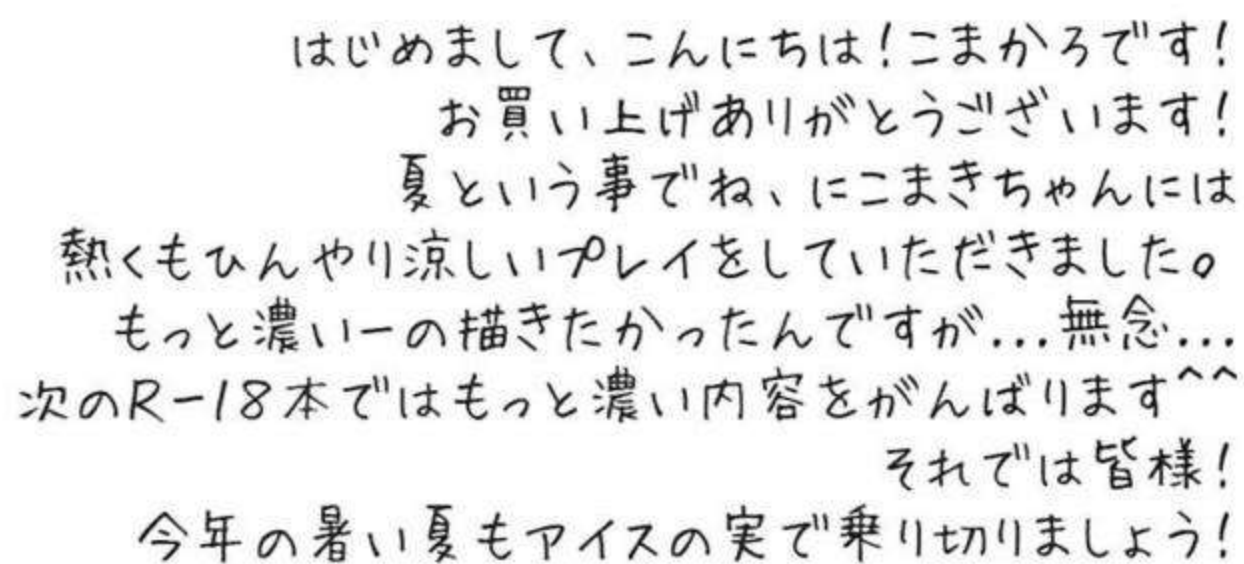 はじめまして、こんにちは!こまかろです!
お買い上げありがとうございます!
夏という事でね、にこまきちゃんには
熱くもひんやり涼しいプレイをしていただきました。
もっと濃いーの描きたかったんですが...無念...
次のR-18本ではもっと濃い内容をがんばります^^
それでは皆様!
今年の暑い夏もアイスの実で乗り切りましょう!